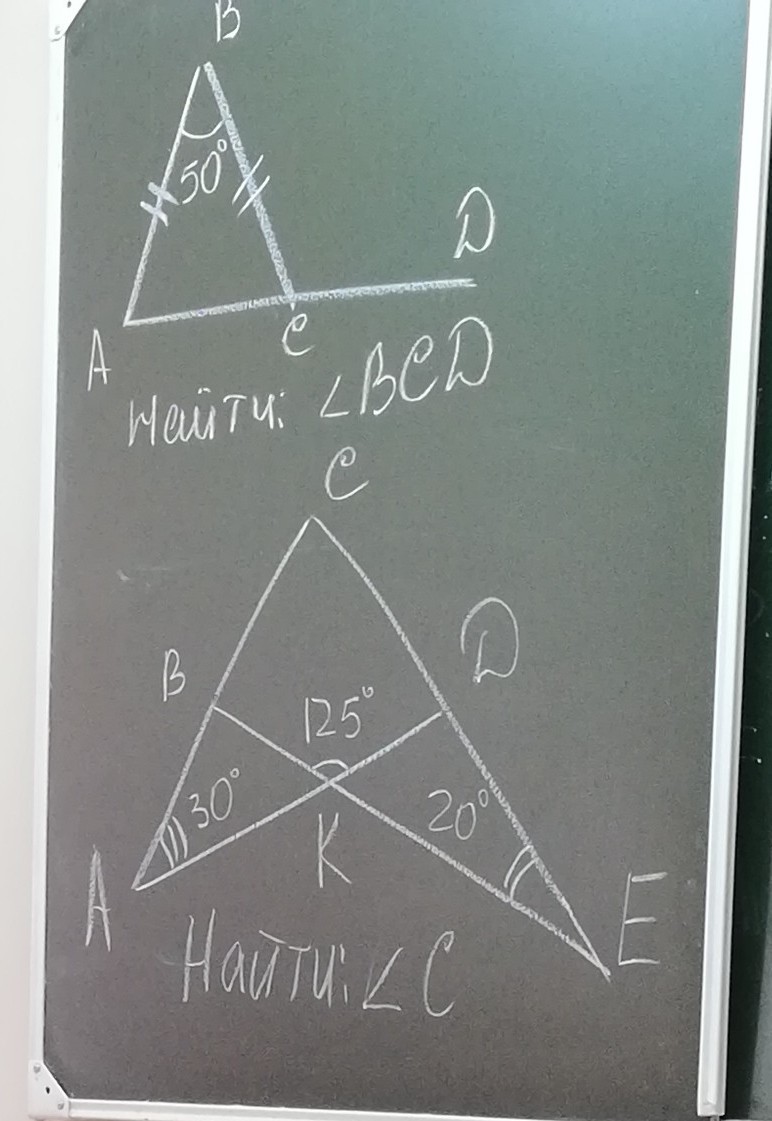 B
50°
D
A
C
Найти: ∠BCD
C
B
D
125°
30°
20°
K
A
E
Найти: ∠C